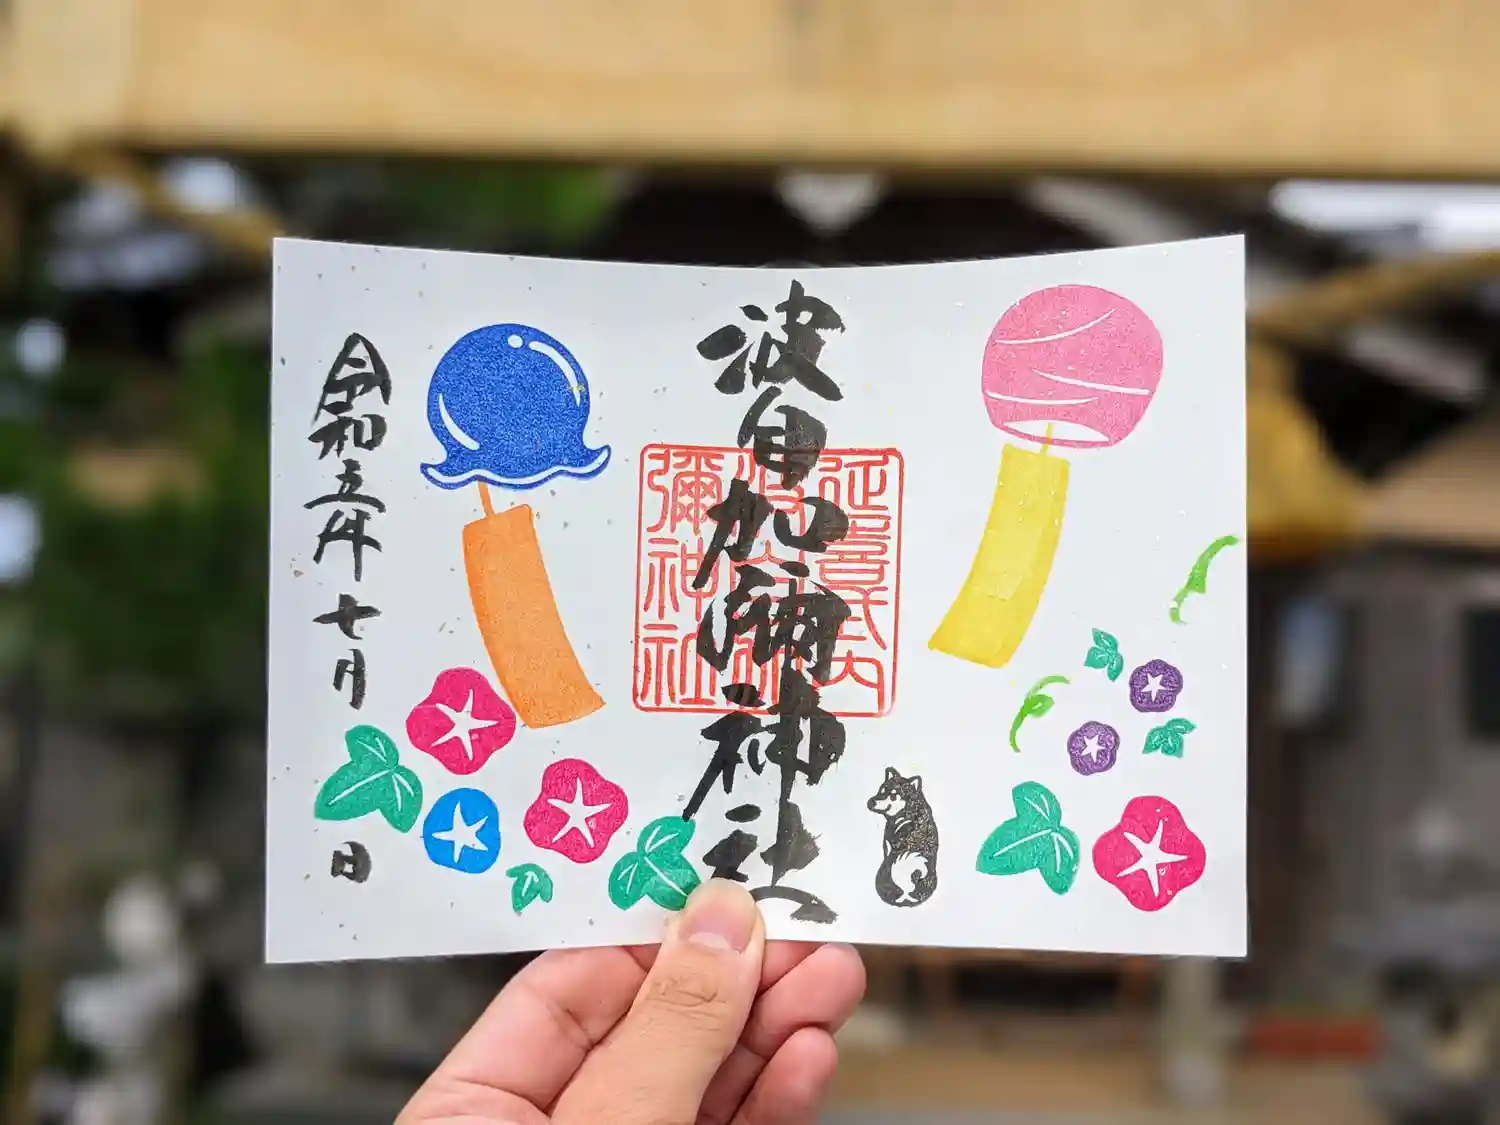 波自加彌神社
延喜式内
波自加
彌神社
令和五年七月 日